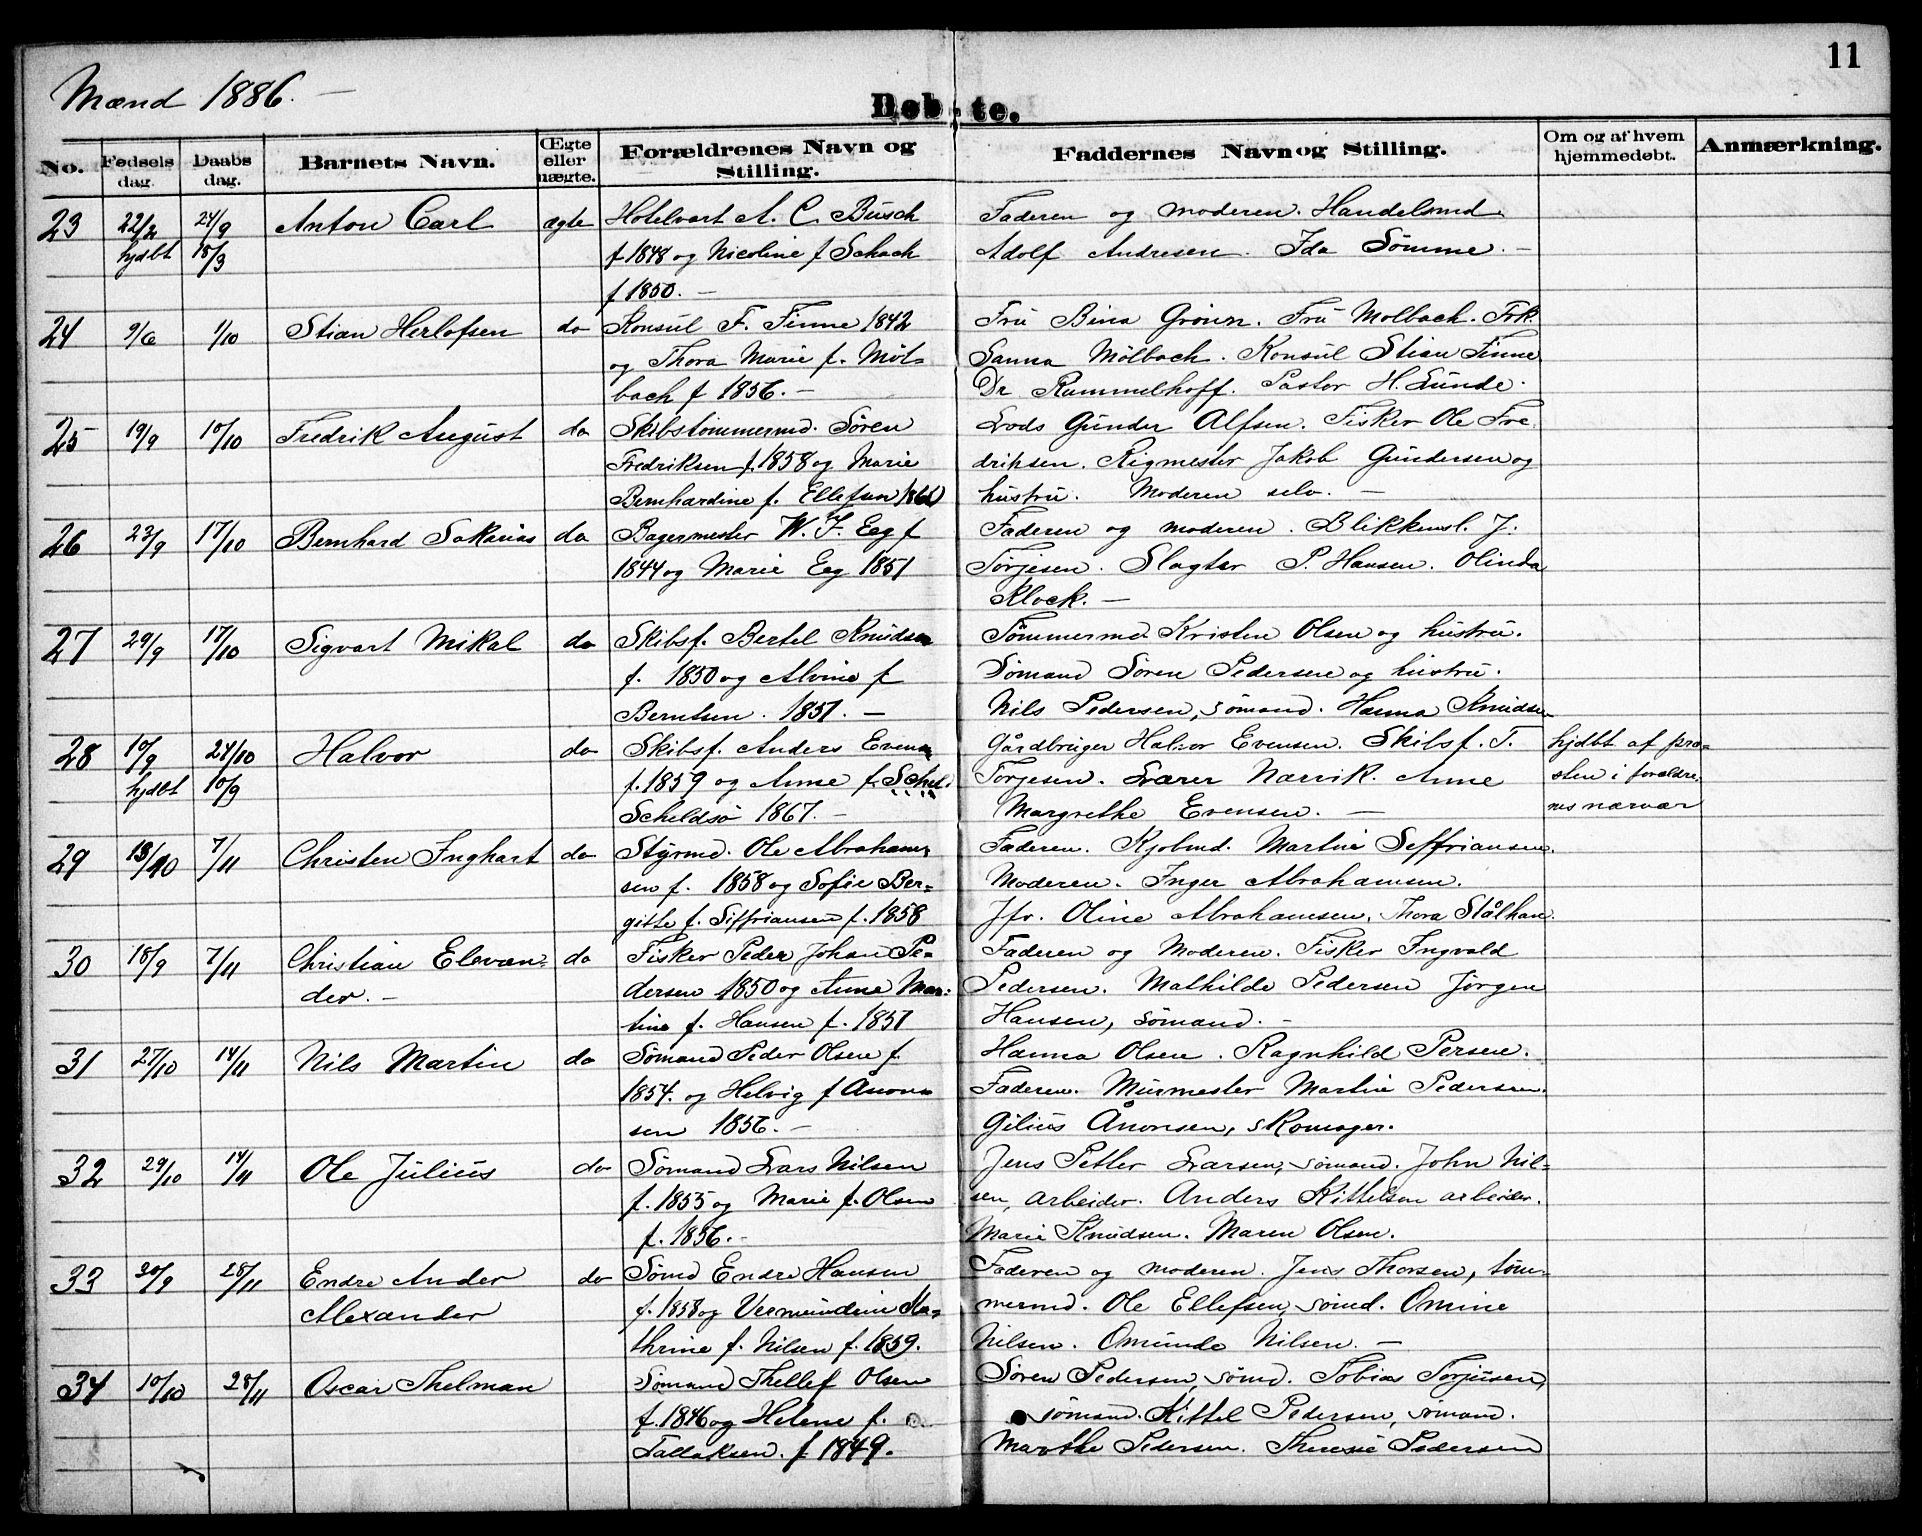 11
Mænd 1886. —
Døb-te.
No. Fødsels dag. Daabs dag. Barnets Navn. Ægte eller uægte. Forældrenes Navn og Stilling. Faddernes Navn og Stilling. Om og af hvem hjemmedøbt. Anmærkning.
23 22/2 24/9 Anton Carl ægte Hotelvært A. C. Busch Faderen og moderen. Handelsmd.
hjdbt 18/3 f 1848 og Nicoline f Schach Adolf Andresen. Ida Sömme. —
f 1850. —
24 9/6 1/10 Stian Herlofsen do Konsul F. Finne 1842 Fru Bina Grönn. Fru Molbach. Frk.
og Thora Marie f. Möl- Sanna Mölbach. Konsul Stian Finne
bach f 1856. — Dr Rummelhoff. Pastor H. Lunde.
25 19/9 10/10 Fredrik August do Skibstömmermd. Sören Lods Gunder Alfsen. Fisker Ole Fre
Fredriksen f. 1858 og Marie driksen. Rigmester Jakob Gundersen og
Bernhardine f. Ellefsen hustru. Moderen selv. —
26 23/9 17/10 Bernhard Sakarias do Bagermester W. F. Eeg f Faderen og moderen. Blikkensl. J.
1844 og Marie Eeg 1851 Torjesen. Slagter P. Hansen. Olinda
Klock. —
27 29/9 17/10 Sigvart Mikal do Skibsf. Bertel Knudsen Tömmermd. Kristen Olsen og hustru.
f. 1850 og Alvine f Sömand Sören Pedersen og hustru.
Berntsen. 1851. — Nils Pedersen, sömand. Hanna Knudsen
28 10/9 24/10 Halvor do Skibsf. Anders Evensen Gårdbruger Halvor Evensen. Skibsf. T. hjdbt af præ-
hjdbt 10/9 f. 1859 og Anne f. Schel. Torjesen. Lærer Narvik. Anne sten i forældre.
Scheldsö 1867. — Margrethe Evensen. — nes nærvær
29 13/10 7/11 Christen Inghart do Styrmd. Ole Abraham Faderen. Kjobmd. Martin Seffriansen.
sen f. 1858 og Sofie Ber- Moderen. Inger Abrahamsen.
gitte f. Siffriansen f. 1858 Jfr. Oline Abrahamsen. Thora Stålhan
30 18/9 7/11 Christian Elevan- do Fisker Peder Johan Pe- Faderen og Moderen. Fisker Ingvald
der. — dersen 1850 og Anne Mar- Pedersen. Mathilde Pedersen Jörgen
tine f. Hansen f. 1851 Hansen, sömand. —
31 27/10 14/11 Nils Martin do Sömand Peder Olsen f. Hanna Olsen. Ragnhild Persen.
1854. og Helvig f Ånon Faderen. Murmester Martin Pedersen.
sen 1856. — Gilius Ånonsen, skomager.
32 29/10 14/11 Ole Julius do Sömand Lars Nilsen Jens Petter Larsen, sömand. John Nil-
f. 1855 og Marie f. Olsen sen, arbeider. Anders Kittelsen arbeider.
f. 1856. — Marie Knudsen. Maren Olsen.
33 20/9 28/11 Endre Ander do Sömd Endre Hansen Faderen og moderen. Jens Thorsen, töm-
Alexander f. 1858 og Vermundine Ka- mermd. Ole Ellefsen, sömd. Omine
thrine f. Nilsen f. 1859. Nilsen. Omunde Nilsen. —
34 10/10 28/11 Oscar Thelman Sömand Thellef Olsen Sören Pedersen, sömd. Tobias Torjusen,
f. 1846 og Helene f. sömand. Kittel Pedersen, sömand.
Tallaksen. f 1849. Marthe Pedersen. Theresie Pedersen